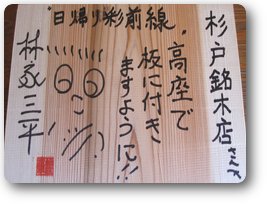 "日帰り彩前線"
杉戸銘木店さんへ
高座で
板に付き
ますように!!
林家三平